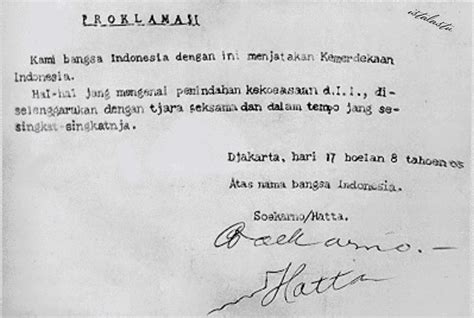 P R O K L A M A S I
Kami bangsa Indonesia dengan ini menjatakan Kemerdekaan
Indonesia.
Hal-hal jang mengenai pemindahan kekoeasaan d.l.l., di-
selenggarakan dengan tjara seksama dan dalam tempo jang se-
singkat-singkatnja.
Djakarta, hari 17 boelan 8 tahoen 05
Atas nama bangsa Indonesia.
Soekarno/Hatta.
Soekarno.-
Hatta